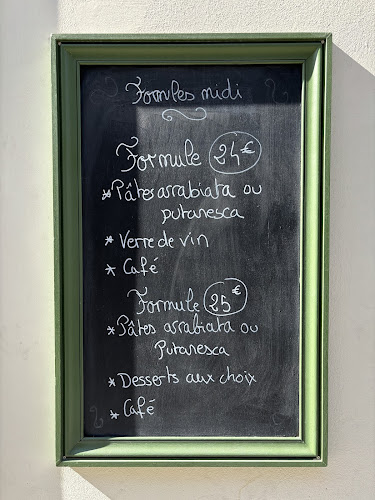 Formules midi
Formule 24€
* Pâtes arrabiata ou
putanesca
* Verre de vin
* Café
Formule 25€
* Pâtes arrabiata ou
Putanesca
* Desserts aux choix
* Café